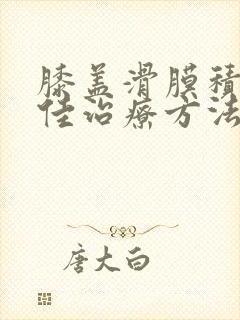 膝盖滑膜积
佳治疗方法
唐大白